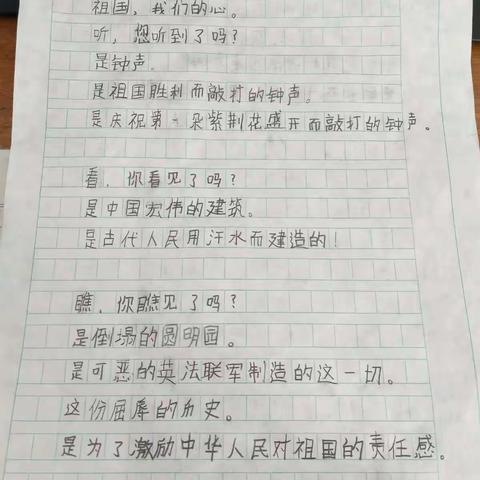 祖国，我们的心。
听，您听到了吗？
是钟声。
是祖国胜利而敲打的钟声。
是庆祝第一朵紫荆花盛开而敲打的钟声。
看，你看见了吗？
是中国宏伟的建筑。
是古代人民用汗水而建造的！
瞧，你瞧见了吗？
是倒塌的圆明园。
是可恶的英法联军制造的这一切。
这份屈辱的历史。
是为了激励中华人民对祖国的责任感。